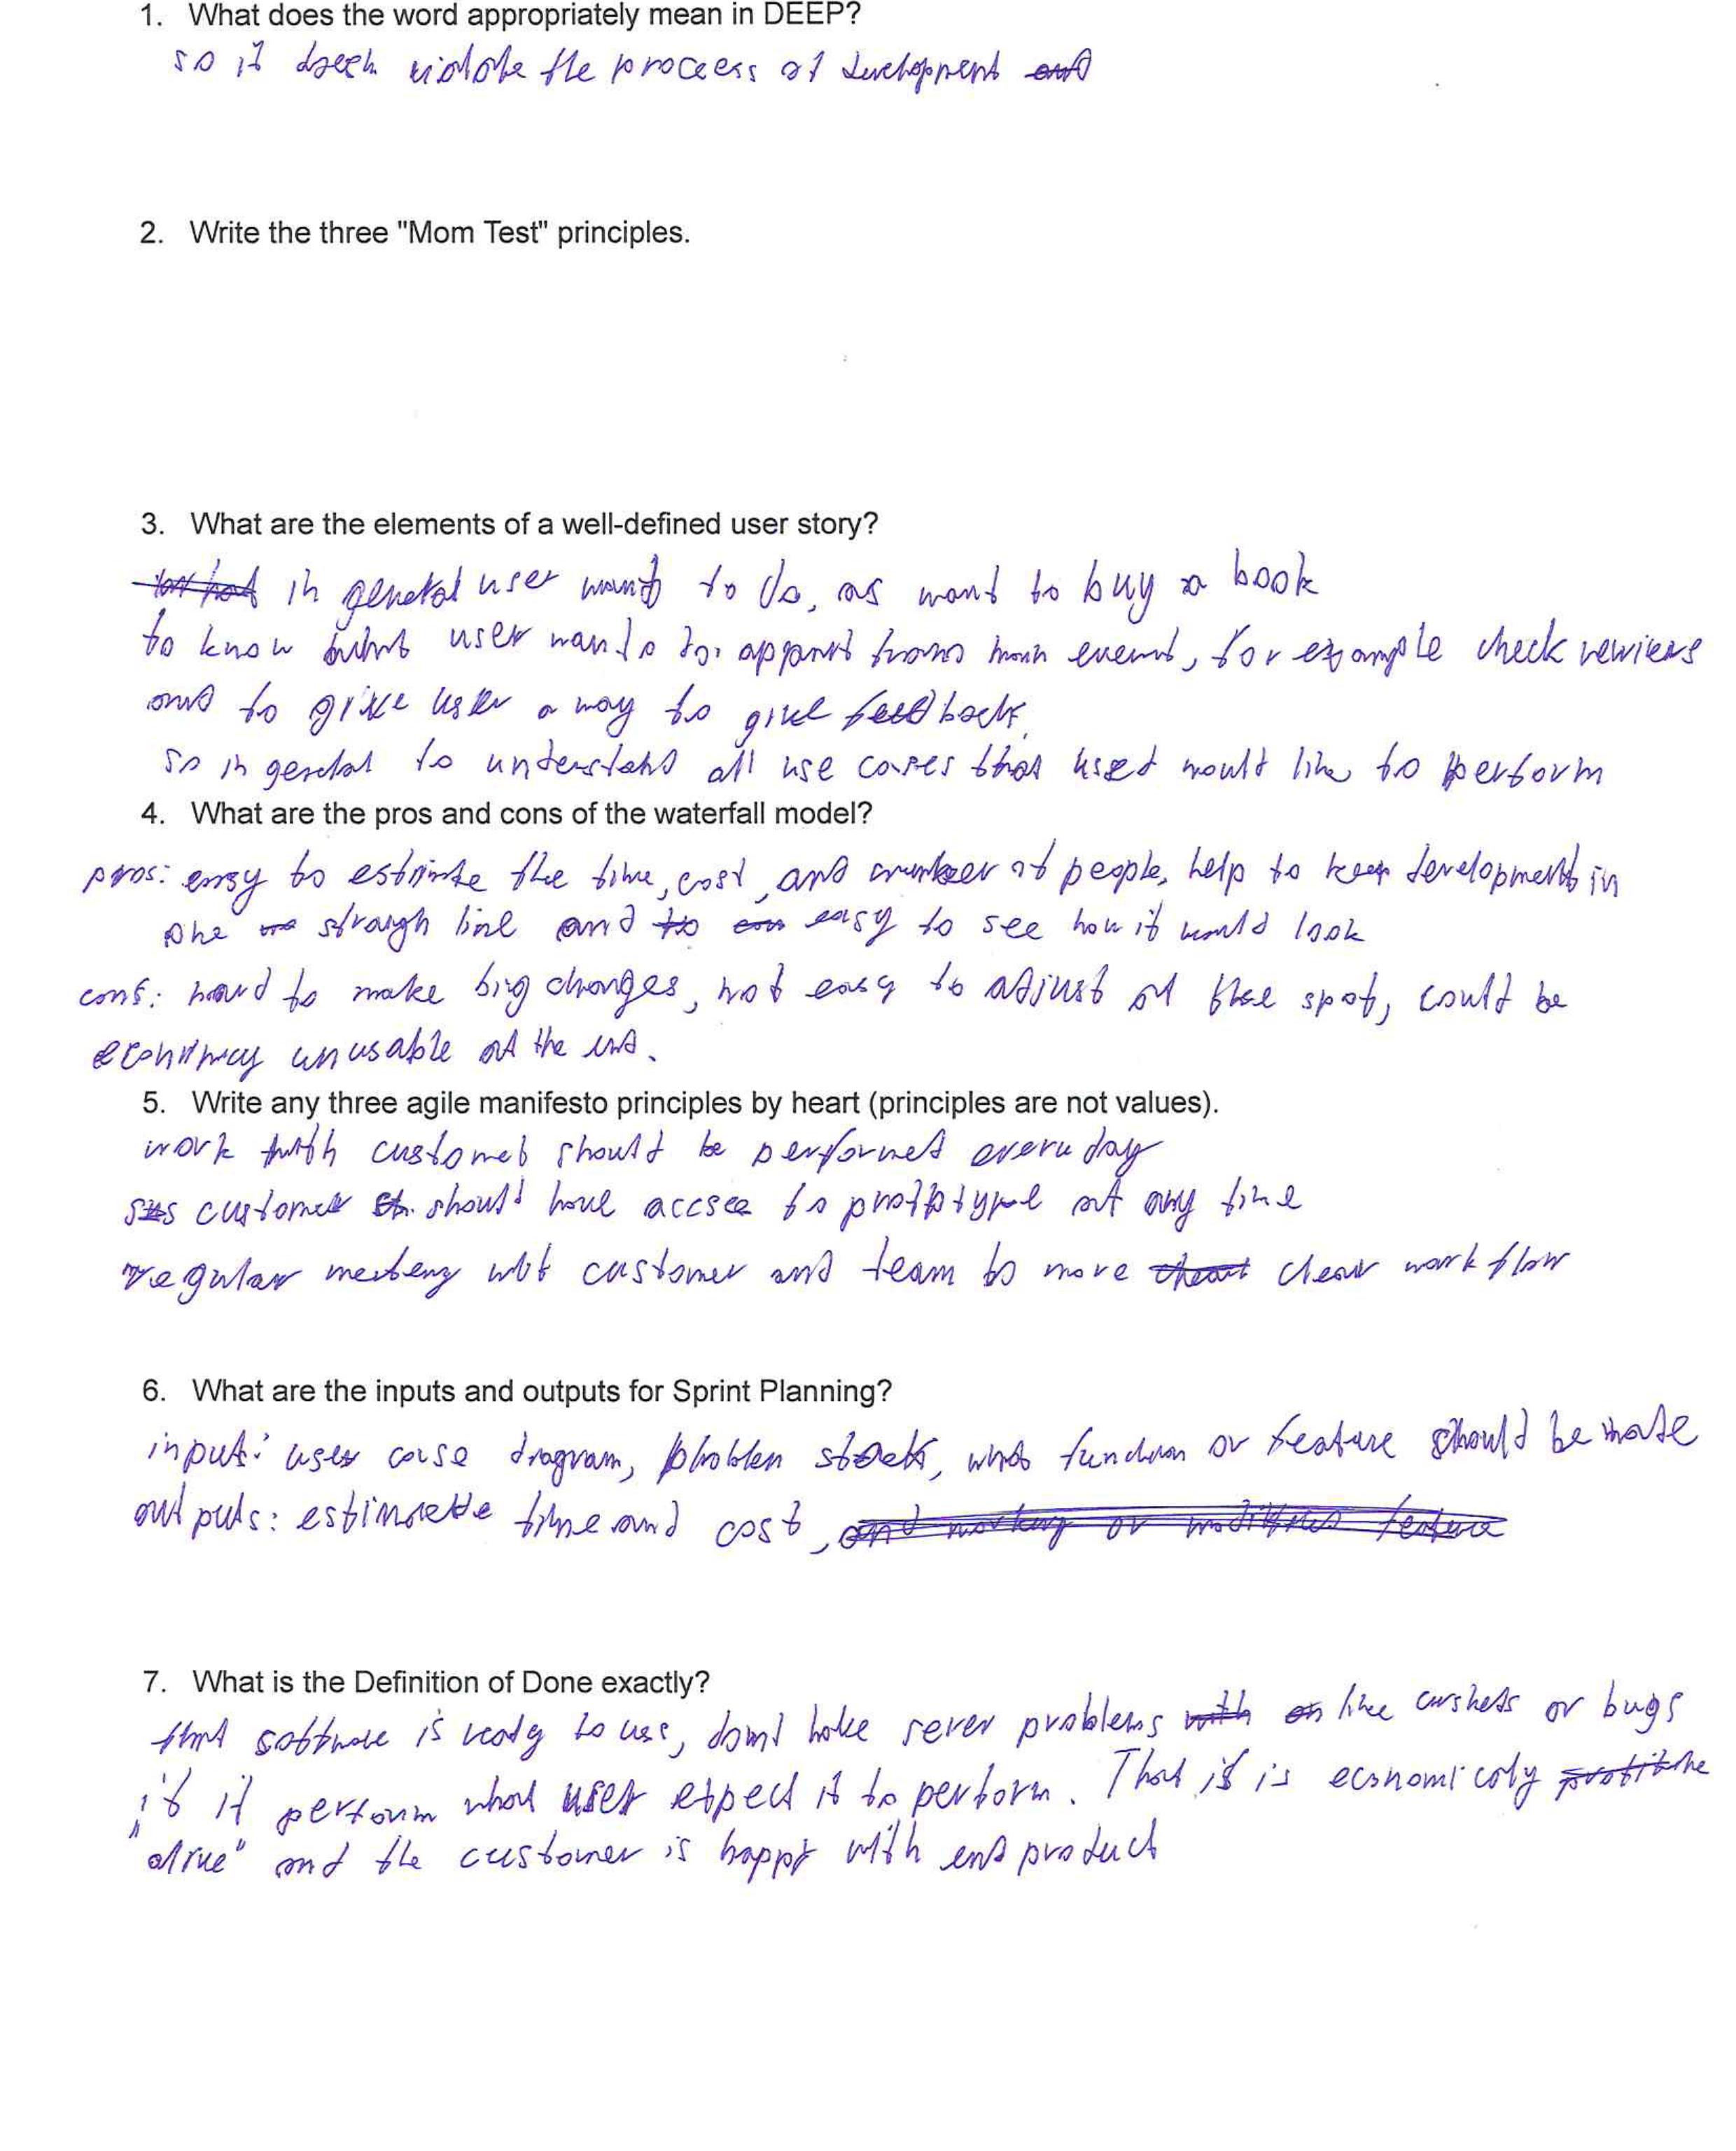 1. What does the word appropriately mean in DEEP?
so it violate the process of development
2. Write the three "Mom Test" principles.
3. What are the elements of a well-defined user story?
in general user want to do, as want to buy a book
to know what user wants to, appart from main event, for example check rewiews
and to give user a way to give feedback.
so in general to understand all use cases that used would like to perform
4. What are the pros and cons of the waterfall model?
pros: easy to estimate the time, cost, and number of people, help to keep development in
one straigh line and easy to see how it would look
cons: hard to make big changes, not easy to adjust at the spot, could be
unusable at the end.
5. Write any three agile manifesto principles by heart (principles are not values).
work with customer should be performed every day
customer should have accsee to prototype at any time
regular with customer and team to more clear work flow
6. What are the inputs and outputs for Sprint Planning?
input: user case diagram, problem what function or feature should be made
outputs: estimate time and cost,
7. What is the Definition of Done exactly?
that software is ready to use, dont have sever problems like or bugs
if it perform what user expect it to perform. That is is economicaly
"alive" and the customer is happy with end product